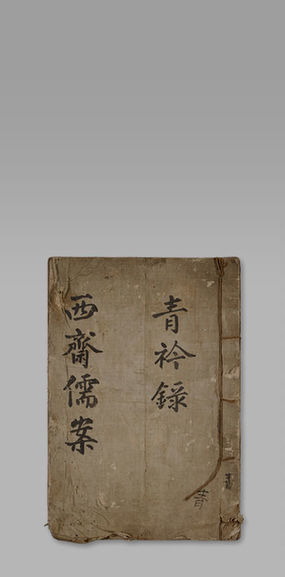 青衿錄
西齋儒案
青